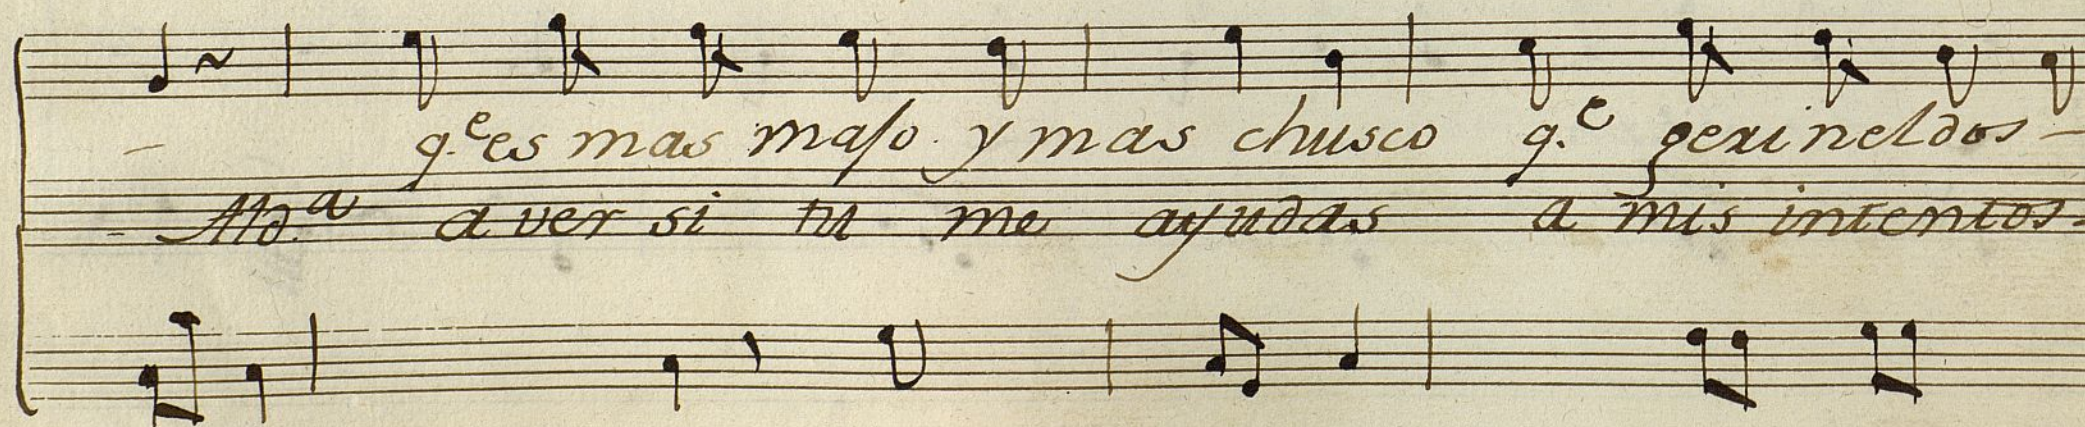 - q.e es mas majo y mas chusco q.e gerineldos -
- Md.a a ver si tu me ayudas a mis intentos -